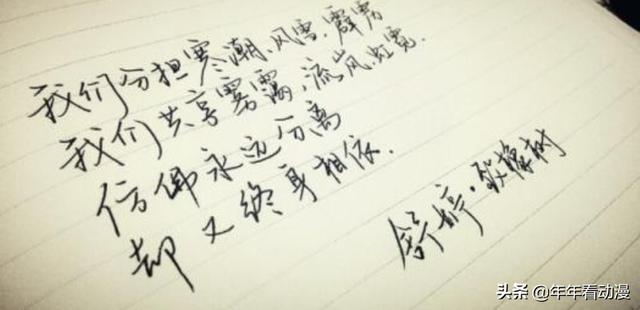 我们分担寒潮、风雷、霹雳
我们共享雾霭、流岚、虹霓.
仿佛永远分离
却又终身相依.
舒婷·致橡树
头条 @年年看动漫